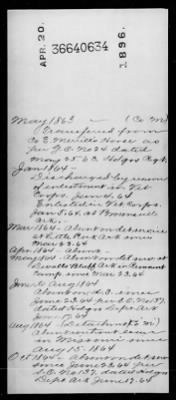 APR. 20. 36640634 1896.
May 1863 - (Co M)
Transferred from
Co E. Merrill's Horse as
per S.O. No 24 dated
May 25.63. Hdqrs Regt.
Jan 1864 -
Discharged by reason
of enlistment in Vet
Corps. Jan 4.64
Enlisted in Vet. Corps.
Jan 5.64. at Brownsville
Ark.
Mar 1864 - Absent on det service
at Little Rock Ark since
Mar 23.64
Apr. 1864 - Same
May 1864 - Absent on det serv. at
Bluff Ark or Remount
Camp since Mar 23.64
June to Aug 1864
Absent on d.s. since
June 22.64 per S.O. No 137
dated Hdqrs Dept Ark
June 17.64
Aug 1864 - (Detachment
Absent on detachment
in Missouri since
Aug 15-1864
Oct 1864 - Absent on det serv
since June 22.64 per
S.O. No 137 dated Hdqrs
Dept Ark June 17.64